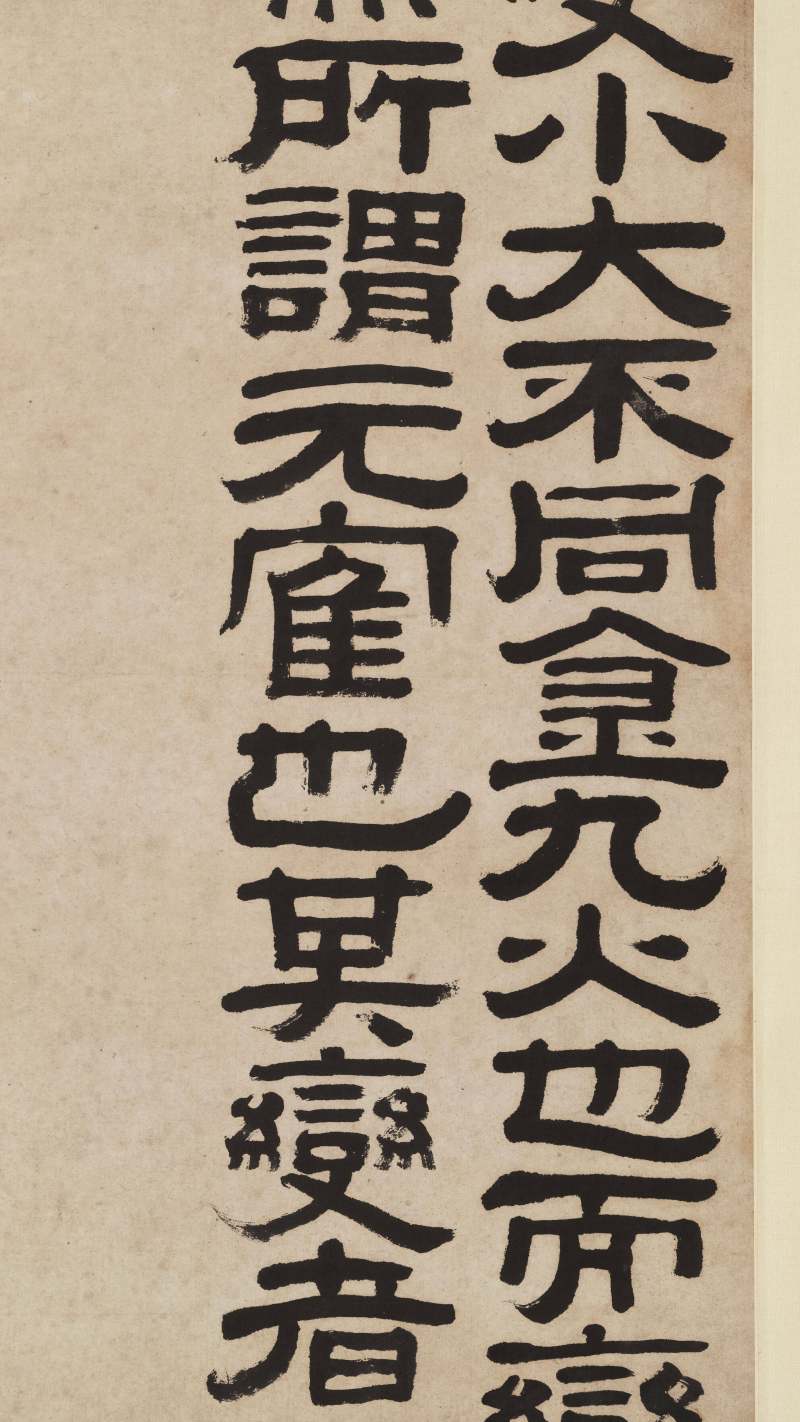 小大不同金九火也而變
無所謂元寉也其變者